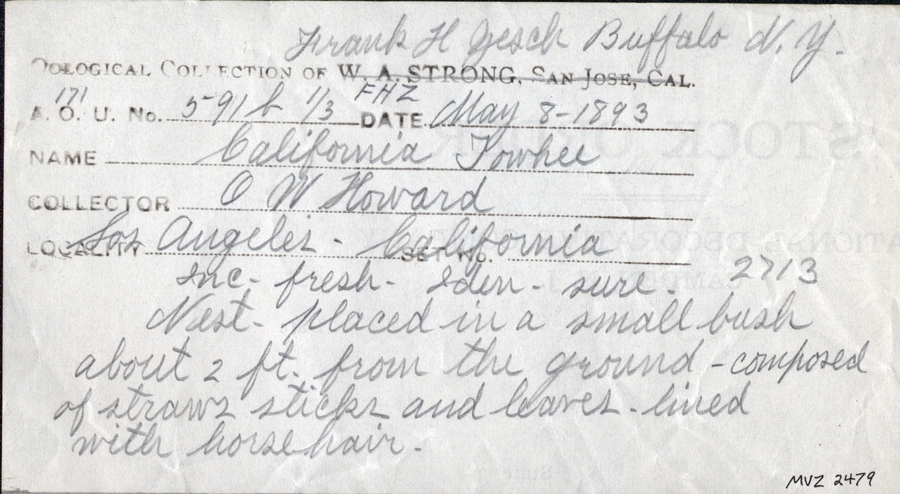 Frank H Zesch Buffalo N. Y.
OOLOGICAL COLLECTION OF W. A. STRONG, SAN JOSE, CAL.
171 FHZ
A. O. U. No. 591b 1/3 DATE May 8-1893
NAME California Towhee
COLLECTOR O W Howard
LOCALITY Los Angeles - California SET No.
Inc - fresh - Iden - sure - 2713
Nest - placed in a small bush
about 2 ft. from the ground - composed
of straws sticks and leaves - lined
with horse hair -
MVZ 2479